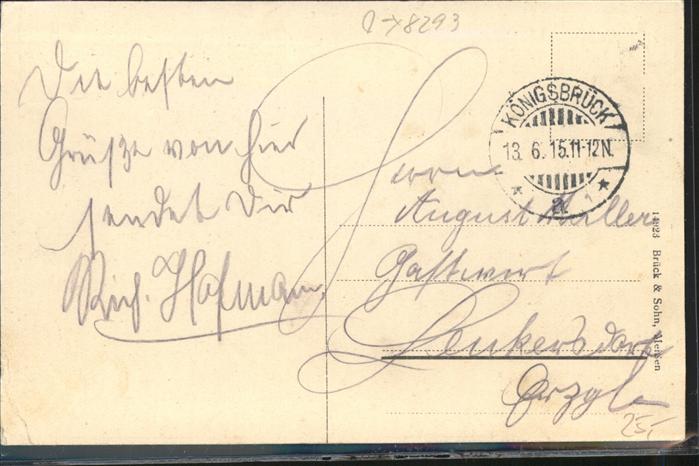 Die besten
Grüsze von hier
sendet Dir
Rich. Hofmann
KÖNIGSBRÜCK
13. 6. 15.11-12N.
Herrn
August Müller
Gastwirt
Lenkersdorf
Erzgb.
14923 Brück & Sohn, Meißen
25,-